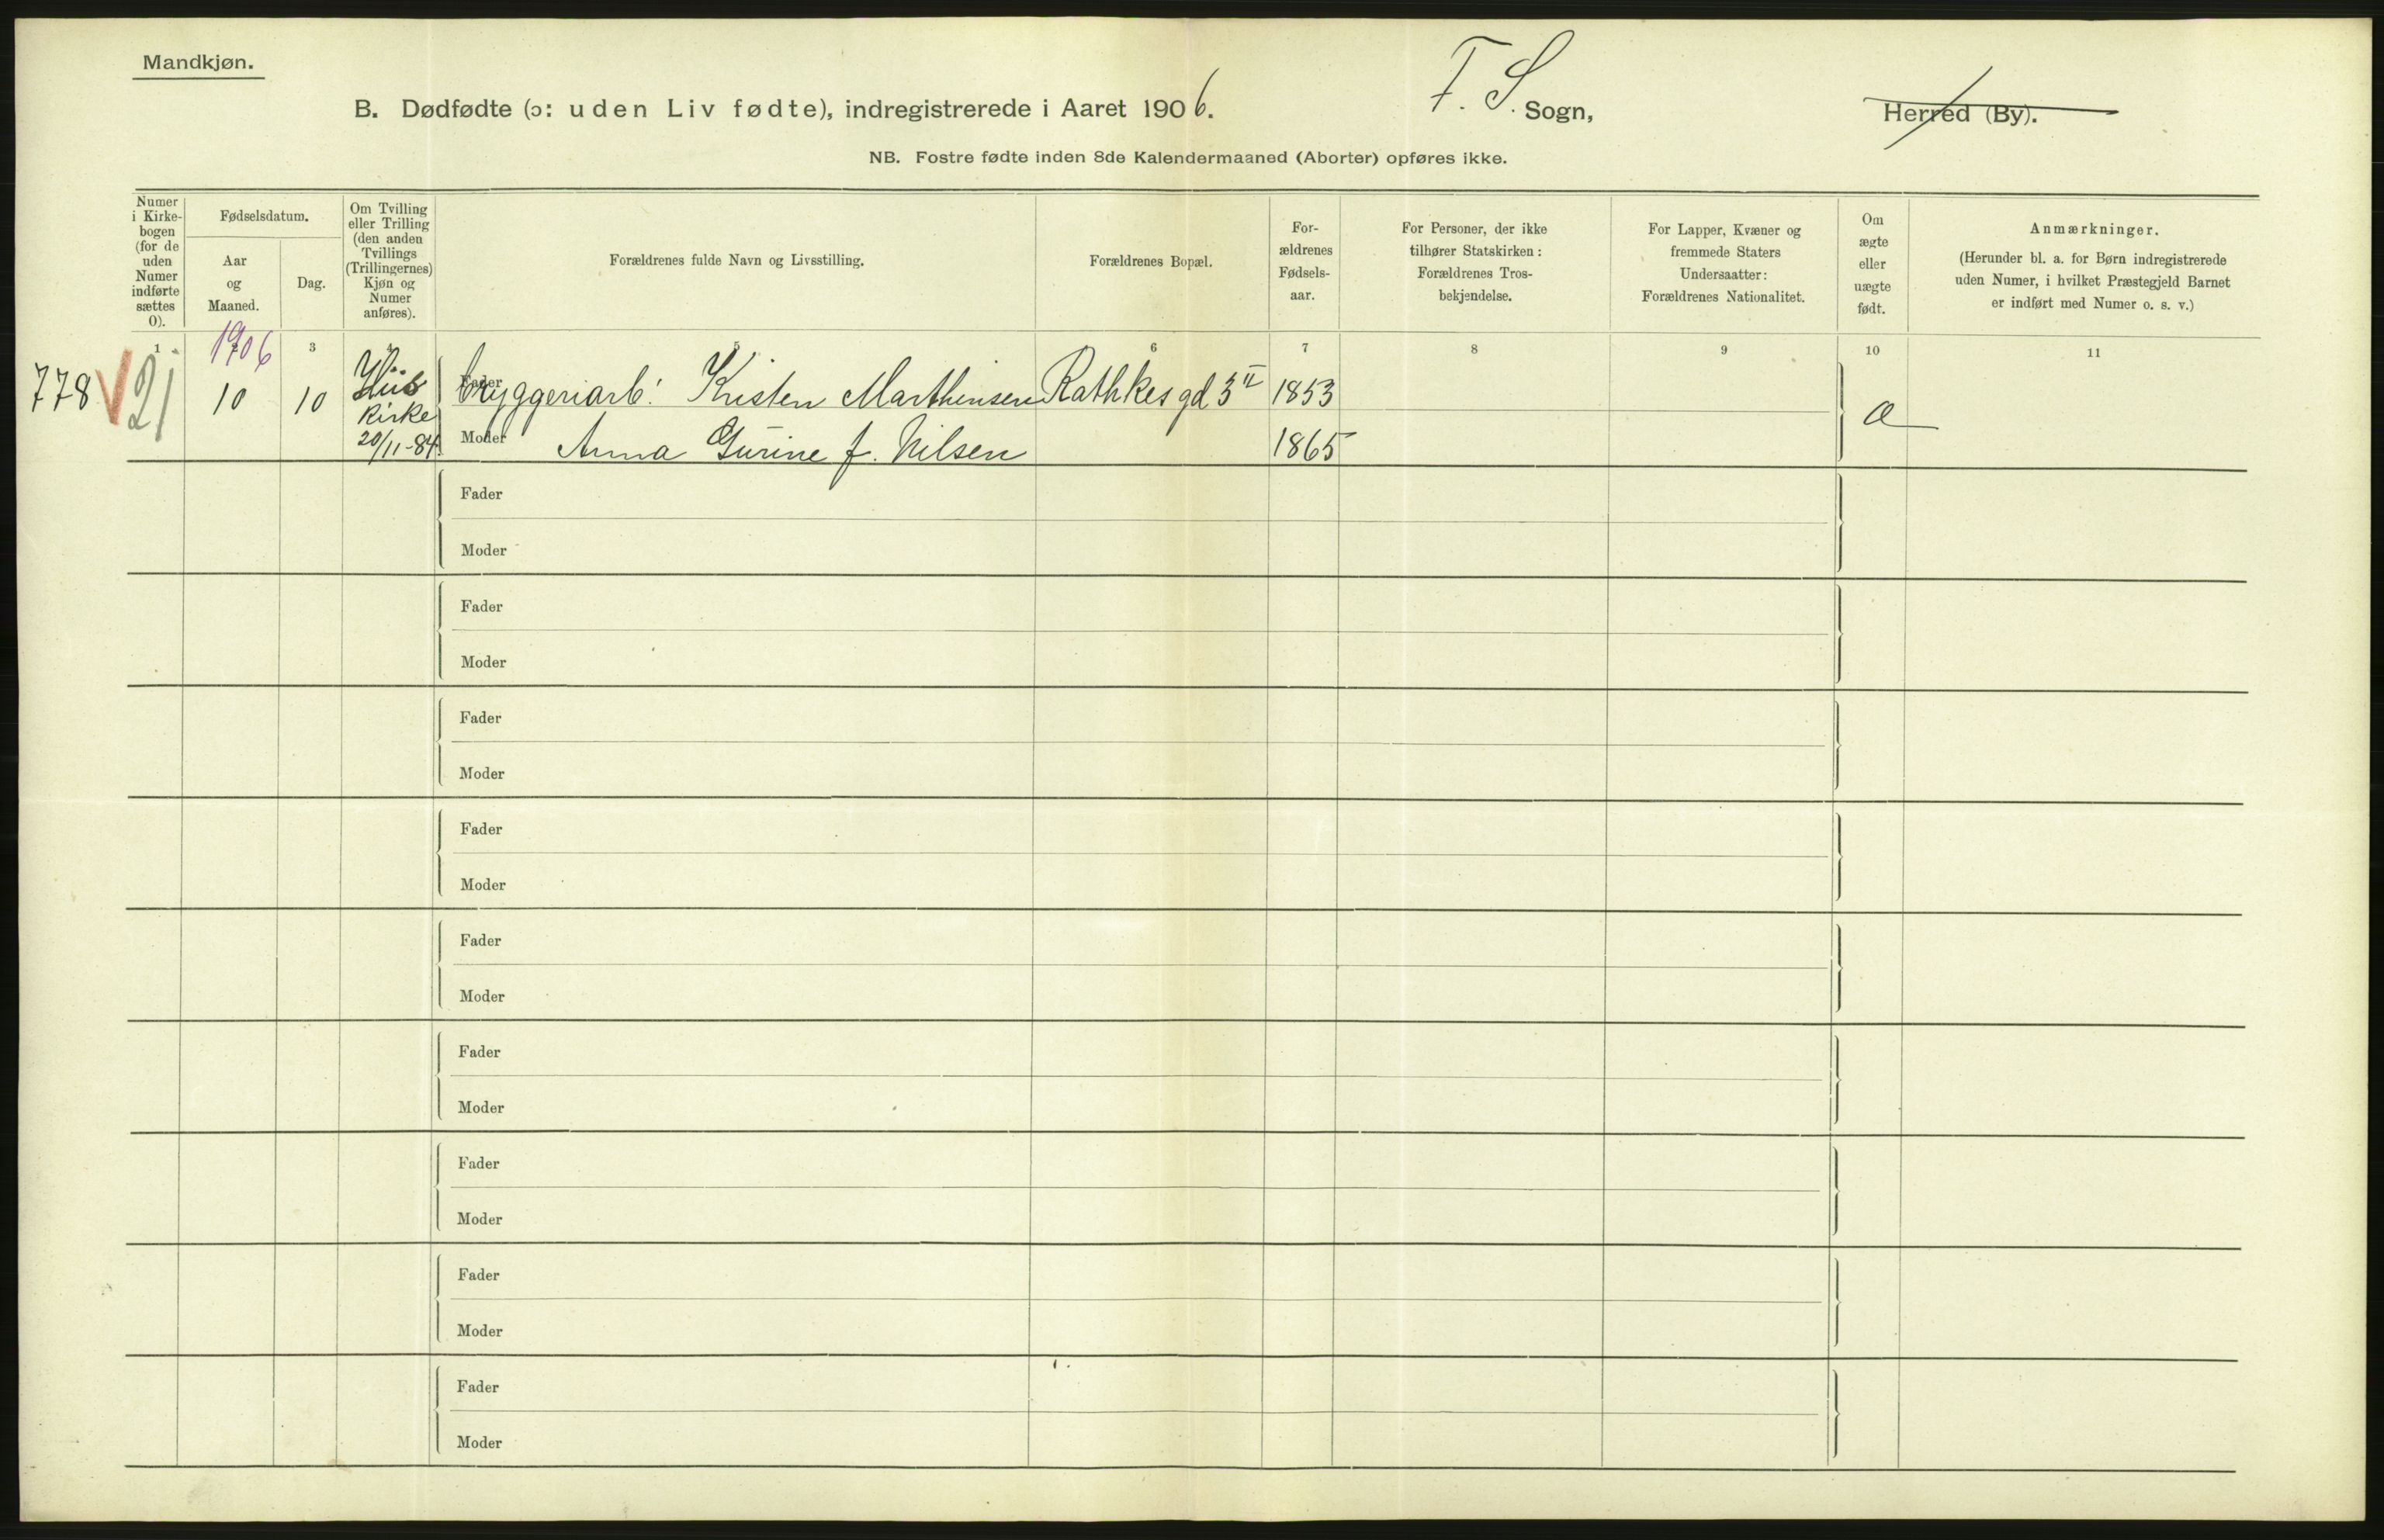 Mandkjøn.
B. Dødfødte (ɔ: uden Liv fødte), indregistrerede i Aaret 1906.
F. S. Sogn,
Herred (By).
NB. Fostre fødte inden 8de Kalendermaaned (Aborter) opføres ikke.
Numer
i Kirke-
bogen
(for de
uden
Numer
indførte
sættes
0).
Fødselsdatum.
Aar
og
Maaned.
Dag.
Om Tvilling
eller Trilling
(den anden
Tvillings
(Trillingernes)
Kjøn og
Numer
anføres).
Forældrenes fulde Navn og Livsstilling.
Forældrenes Bopæl.
For-
ældrenes
Fødsels-
aar.
For Personer, der ikke
tilhører Statskirken:
Forældrenes Tros-
bekjendelse.
For Lapper, Kvæner og
fremmede Staters
Undersaatter:
Forældrenes Nationalitet.
Om
ægte
eller
uægte
født.
Anmærkninger.
(Herunder bl. a. for Børn indregistrerede
uden Numer, i hvilket Præstegjeld Barnet
er indført med Numer o. s. v.)
1 2 3 4 5 6 7 8 9 10 11
1906
778 V 21 10 10
kirke
20/11-84
Fader bryggeriarb: Kristen Marthinsen Rathkes gd 3 II 1853
Moder Anna Gurine f. Nilsen 1865
a
Fader
Moder
Fader
Moder
Fader
Moder
Fader
Moder
Fader
Moder
Fader
Moder
Fader
Moder
Fader
Moder
Fader
Moder